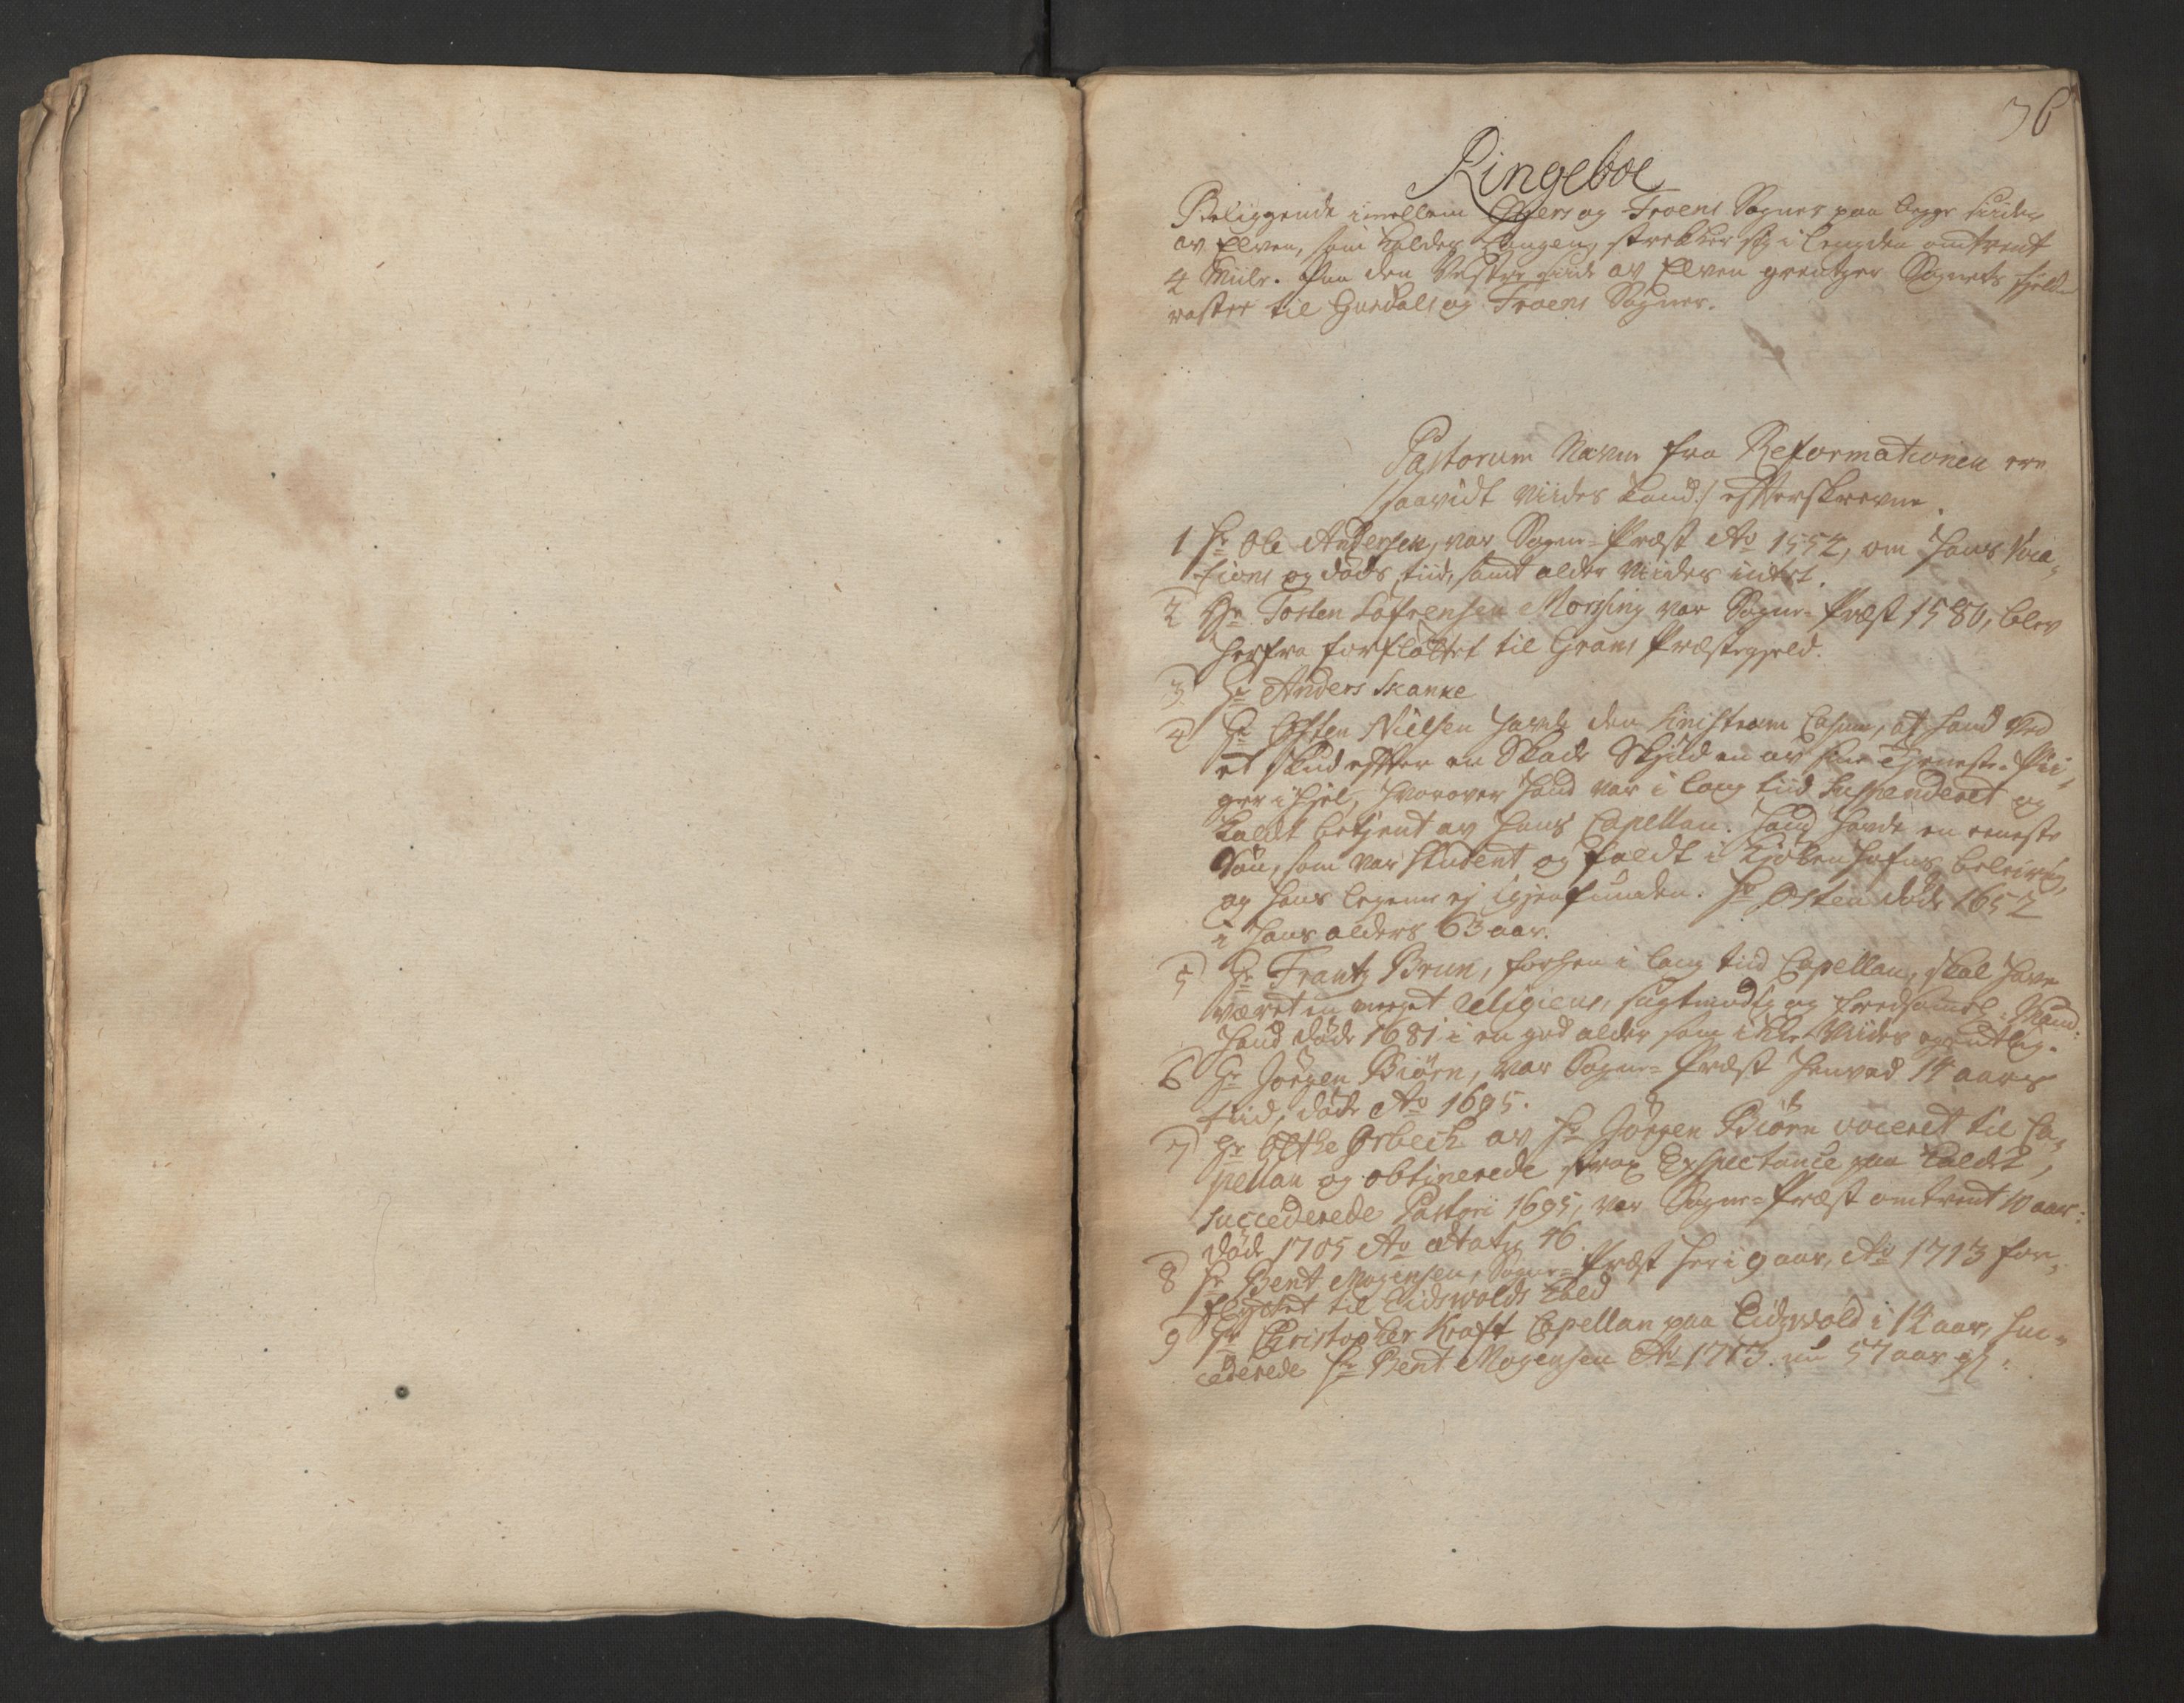 36
Ringeboe
Beliggende imellem Øyers og Froens Sogner paa begge siider
av Elven, som kaldes Laugen, strekker sig i lengden omtrent
4 Miile. Paa den Vestre siide av Elven grentzer Sognets Fjeld
raster til Gusdals og Froens Sogner.
Pastorum Navne fra Reformationen ere
/saavidt viides kand:/ effterskrevne.
1 Hr Ole Andersen, var Sogne-Præst Ao 1552, om hans Voca-
tions og døds tiid, samt alder viides intet.
2 Hr Tosten Lafrensen Morsing var Sogne-Præst 1580, blev
herfra forfløttet til Grans Præstegjeld.
3 Hr Anders Skanke
4 Hr Østen Nielsen havde den sinistram Casum, at hand ved
et skud effter en Skade Skjød en av sine Tjeneste-Pii-
ger ihjel, hvorover hand var i lang tiid suspenderet og
Kaldet betjent av hans Capellan. Hand havde en eeneste
Søn, som var Student og faldt i Kjøbenhafns beleiring,
og hans legeme ej igjenfunden. Hr Østen døde 1652
i hans alders 63 aar.
5 Hr Frantz Brun, forhen i lang tiid Capellan, skal have
været en meget religieus, sagtmodig og fredsomel. Mand.
Hand døde 1681 i en god alder som ikke viides egentlig.
6 Hr Jørgen Biørn, var Sogne-Præst henved 14 aars
tiid, døde Ao 1695.
7 Hr Øltke Ørbech av Hr Jørgen Biørn voceret til Ca-
pellan og obtinerede strax Exspectance paa Kaldet,
succederede Pastori 1695, var Sogne-Præst omtrent 10 aar:
døde 1705 Ao ætatis 46.
8 Hr Bent Mogensen, Sogne-Præst her i 9 aar, Ao 1713 for-
flyttet til Eidswolds Kald
9 Hr Christopher Kraft Capellan paa Eidswold i 12 aar, suc-
cederede Hr Bent Mogensen Ao 1713. nu 57 aar gl.